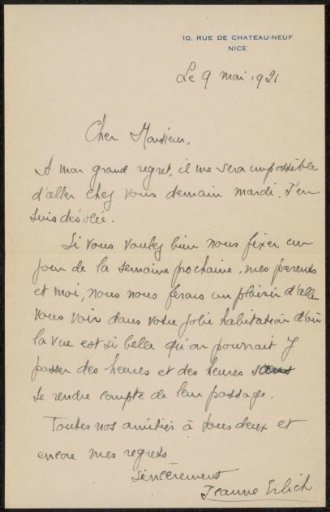 10, RUE DE CHATEAU-NEUF
NICE
Le 9 mai 1921
Cher Monsieur,
A mon grand regret, il me sera impossible
d'aller chez vous demain mardi. J'en
suis désolée.
Si vous voulez bien nous fixer un
jour de la semaine prochaine, mes parents
et moi, nous nous ferons un plaisir d'aller
vous voir dans votre jolie habitation d'où
la vue est si belle qu'on pourrait y
passer des heures et des heures sans
se rendre compte de leur passage.
Toutes nos amitiés à tous deux et
encore mes regrets
Sincèrement
Jeanne Erlich